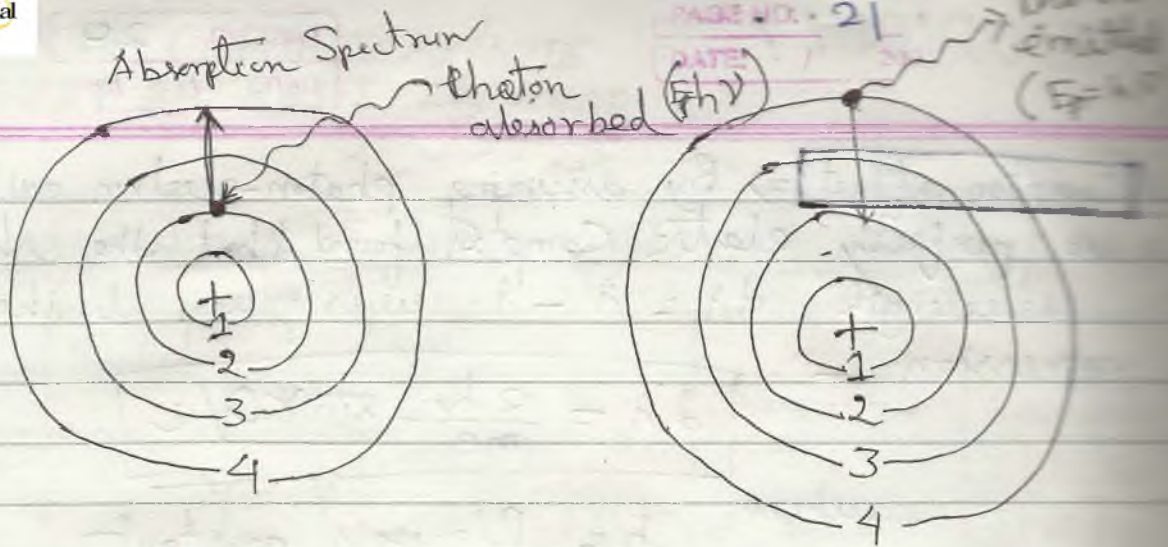 al
PAGE NO. 21
DATE: / 20
Absorption Spectrum
Photon
absorbed (E=hν)
emitted
+
1
2
3
4
+
1
2
3
4